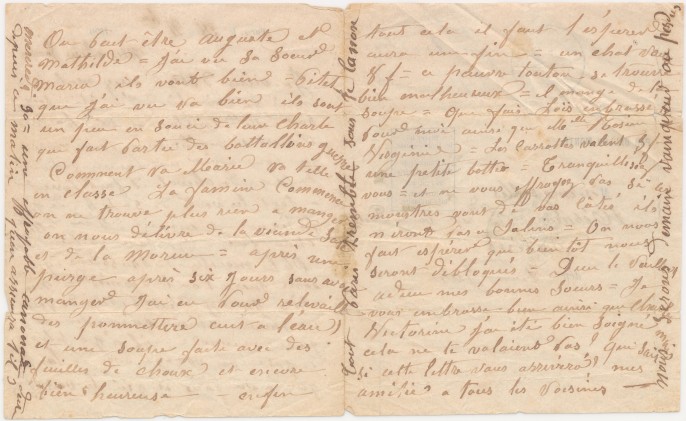 On peut être auguste et
Mathilde = J'ai vu sa Soeur
Maria ils vont bien =
que j'ai vu va bien ils sont
un peu en souci de leur Charle
que fait partie des battallions
Comment va Marie va t'elle
en classe La famine Commence
on ne trouve plus rien a manger
on nous délivre de la viande
et de la Morue = après une
purge après six jours sans
manger J'ai eu Pour relevaille
des pommettere cuit a l'eau
et une soupe faite avec des
feuilles de choux et encore
bien heureuse — enfin
tout cela il faut l'espérer
aura un fin = un chat vau
8 f = ce pauvre toutou se trouve
bien malheureux = il mange de la
soupe = Que fais Loïs embrasse
pour moi ainsi que Melle Rosine
Virginie = Les Carrottes valent 8 f
une petite botte = Tranquillisé
vous = et ne vous effrayez pas si
monstres vont de vos côtés ils
n'iront pas a Salins = On nous
fait espérer que bientôt nous
seront débloqués = Dieu le Veille
adieu mes bonnes Soeurs = Je
vous embrasse bien ainsi que
Victorine J'ai été bien Soigné
cela ne te valaient pas Qui sait
si cette lettre vous arrivera mes
amitié a tous les Voisines
tout Paris tremble sous le canon
nous serons demain vainqueur ou perdus
un effroyable canonade
depuis matin qu'on assure